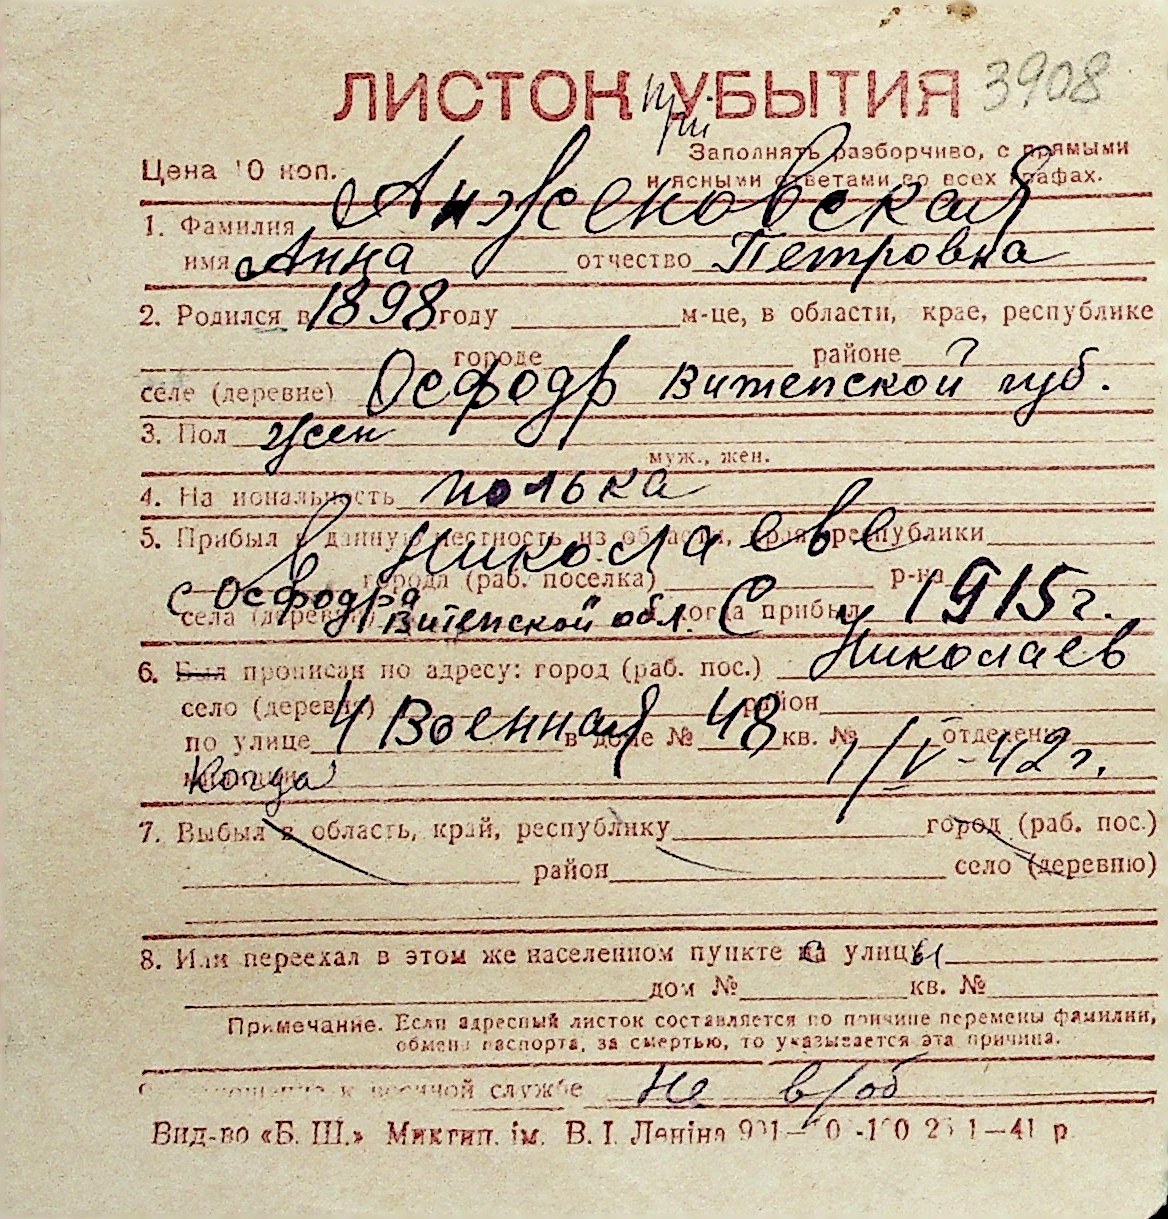 ЛИСТОК при УБЫТИЯ 3908
Цена 10 коп. Заполнять разборчиво, с прямыми
и ясными ответами во всех графах.
1. Фамилия Анженовская
имя Анна отчество Петровна
2. Родился в 1898 году м-це, в области, крае, республике
городе районе
селе (деревне) Осфодр Витепской губ.
3. Пол жен
муж., жен.
4. Национальность полька
5. Прибыл в данную местность из области, края, республики
в Николаеве
города (раб. поселка) р-на
села (деревни) с Осфодра Витепской обл. когда прибыл С 1915 г.
6. Был прописан по адресу: город (раб. пос.) Николаев
село (деревня) район
по улице 4 Военная в доме № 48 кв. № отделения
милиции Когда 1/IV-42 г.
7. Выбыл в область, край, республику город (раб. пос.)
район село (деревню)
8. Или переехал в этом же населенном пункте с улицы
дом № кв. №
Примечание. Если адресный листок составляется по причине перемены фамилии,
обмена паспорта, за смертью, то указывается эта причина.
к военной службе не в/об
Вид-во «Б. Ш.» Микгип. ім. В. І. Леніна 1—41 р.